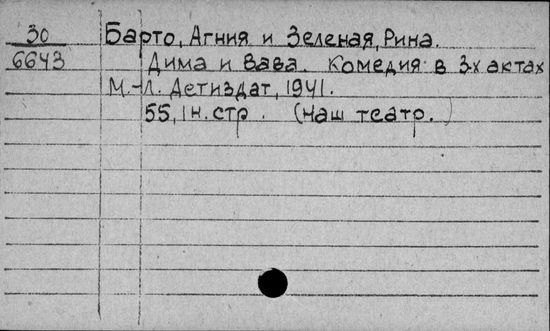 30 Барто, Агния и Зеленая, Рина.
6643 Дима и Вава. Комедия в 3-х актах
М.-Л. Детиздат, 1941.
55, 1 н. стр. (Наш театр.)